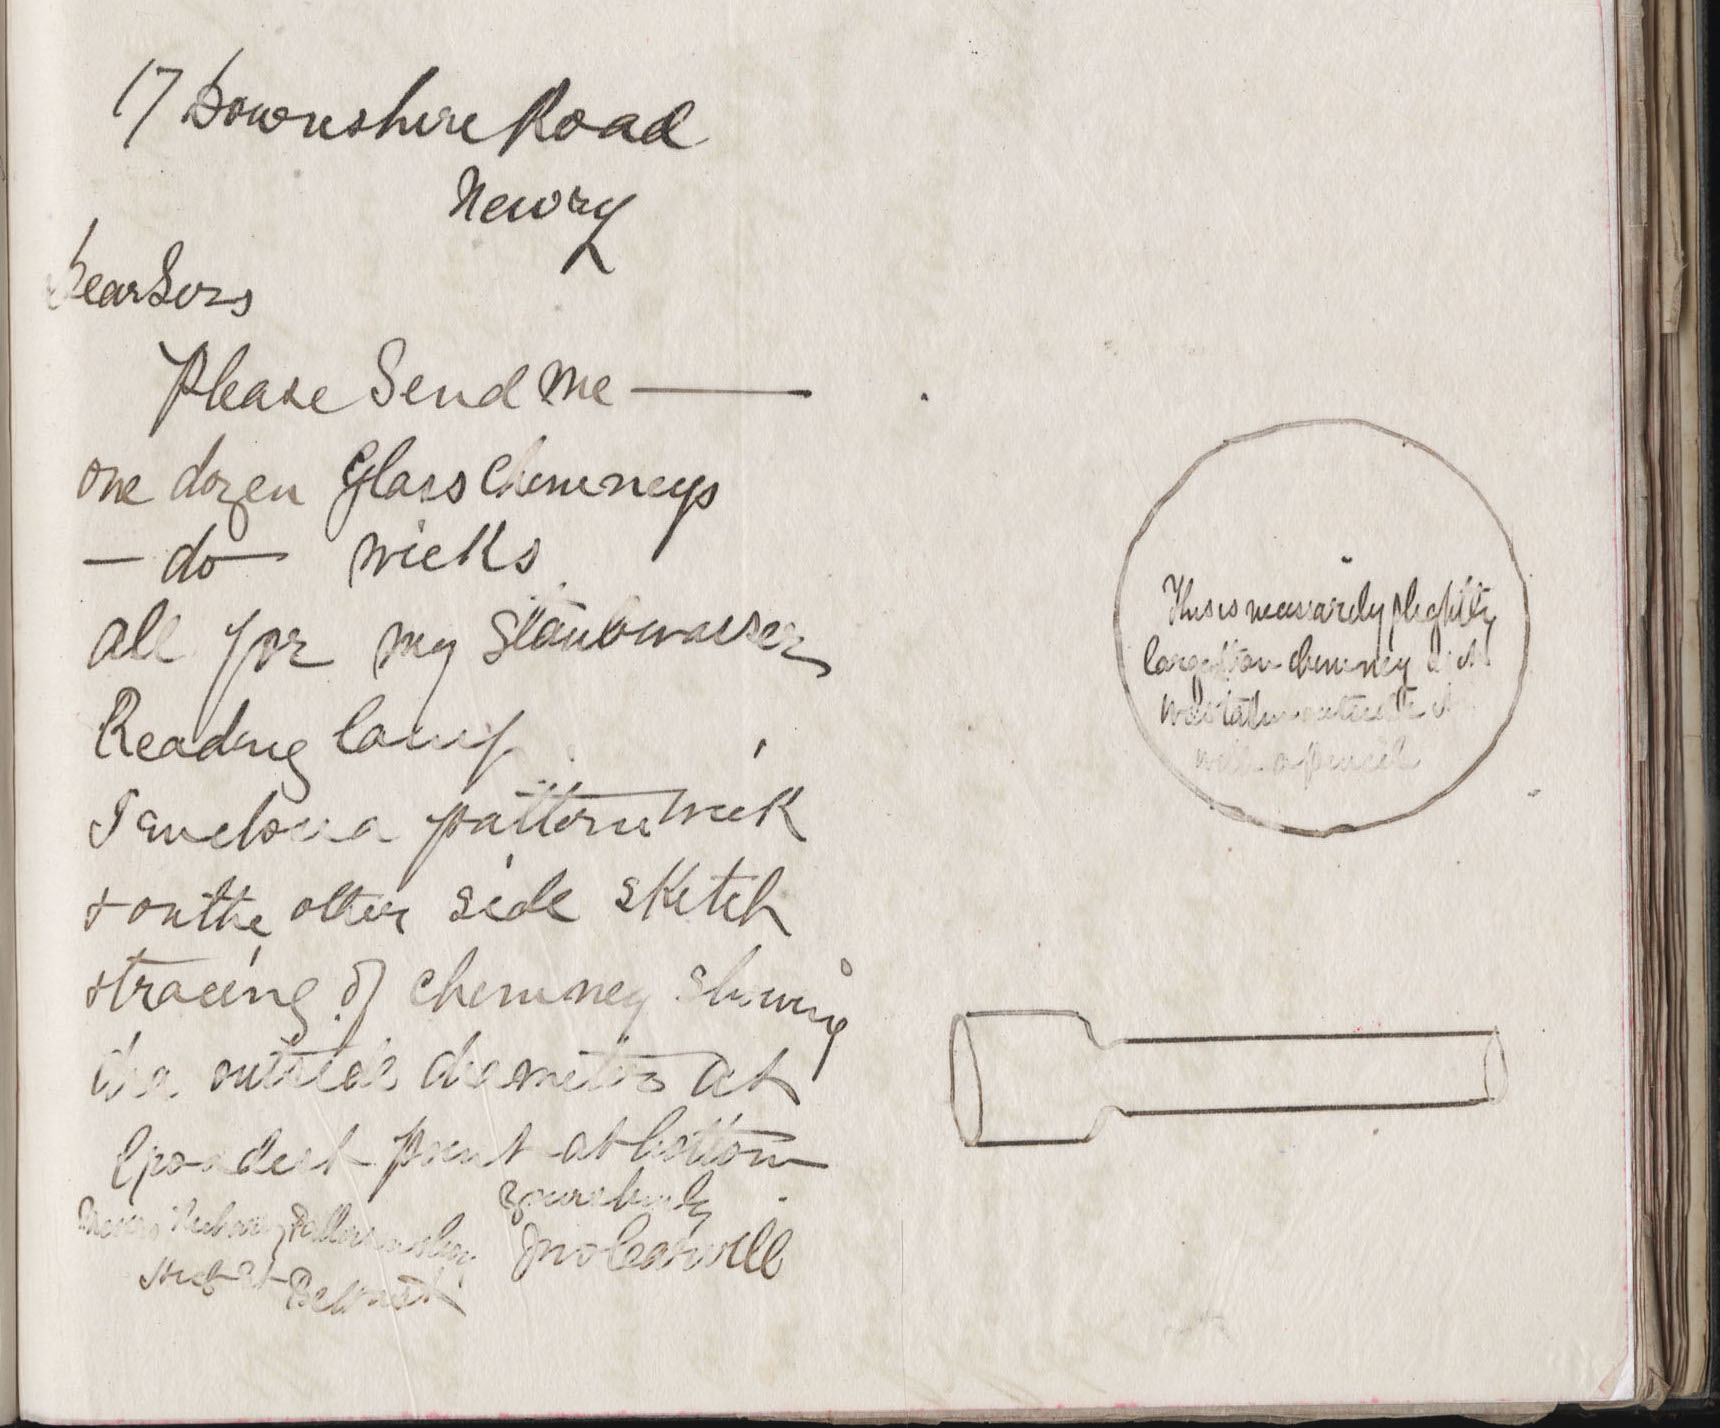 17 Downshire Road
Newry
Dear Sirs
Please Send me —
one dozen Glass Chimneys
— do — wicks
all for my Staubwasser
Reading lamp
I enclose a pattern wick
& on the other side sketch
& tracing of chimney showing
the outside diameter at
broadest point at bottom
yours truly
Messrs Richard Patterson & Coy
High St Belfast
Jno Carvill
This is necessarily slightly
larger than chimney as it
was taken outside it
with a pencil